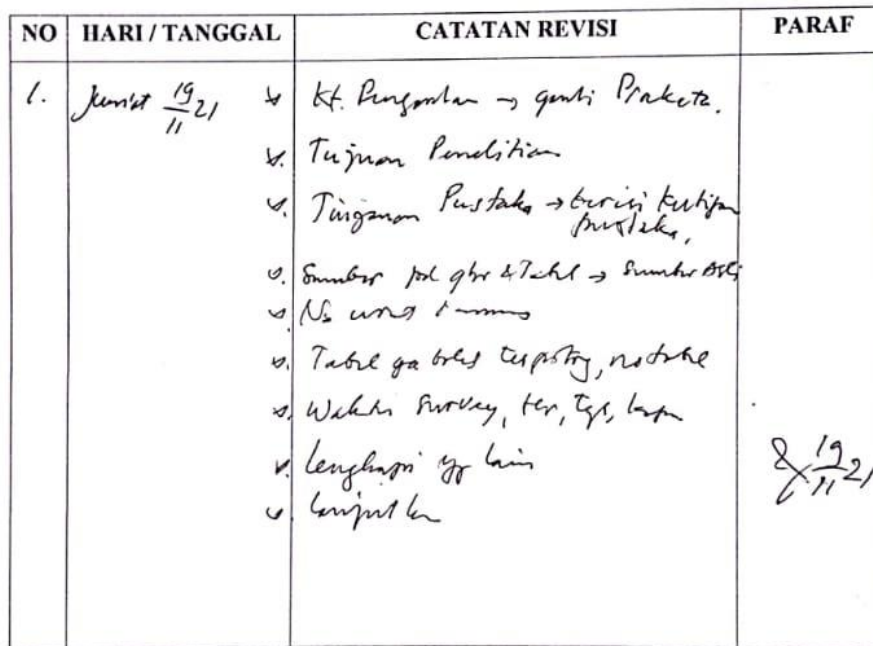 NO HARI / TANGGAL CATATAN REVISI PARAF
1. Jum'at 19/11 21 Kt. Pengantar → ganti Prakata.
Tujuan Penelitian
Tinjauan Pustaka → berisi kutipan
pustaka,
Sumber pd gbr & Tabel → Sumber Asli
No urut rumus
Tabel ga boleh terpotong, no tabel
Waktu Survey, hr, tgl,
Lengkapi yg lain
19/11 21
Lanjutkan